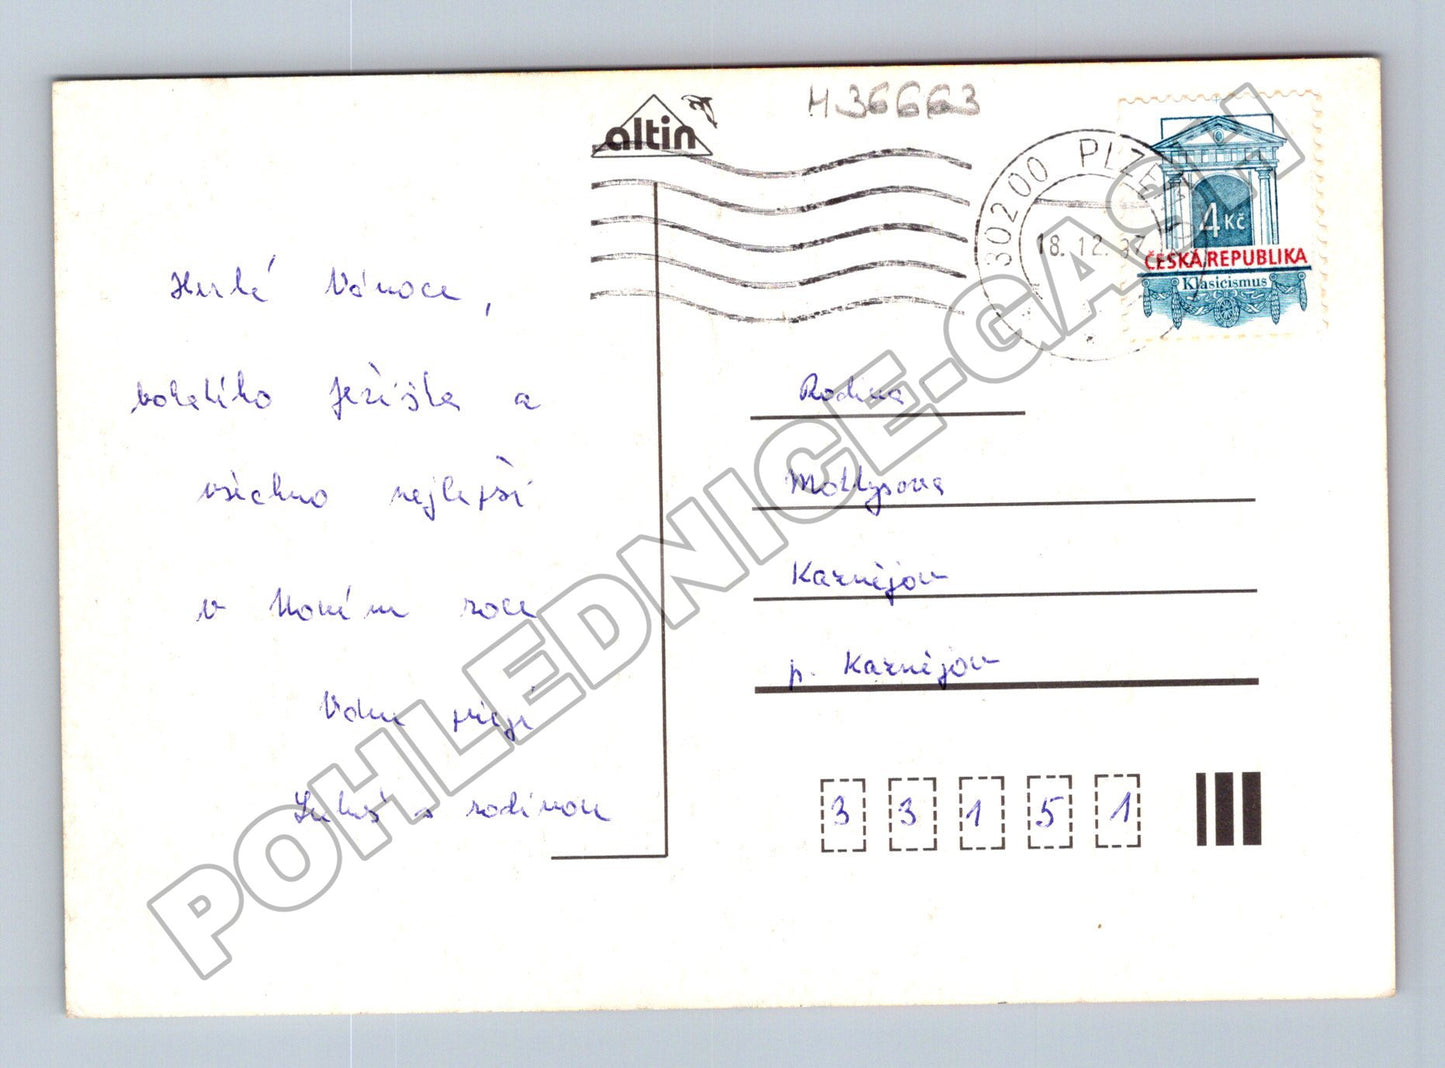 altin
H36663
302 00 PLZEŇ
18. 12. 97
4 Kč
ČESKÁ REPUBLIKA
Klasicismus
Hezké Vánoce,
bohatého Ježíška a
všechno nejlepší
v Novém roce
Vám přeje
Lukáš s rodinou
Rodina
Kaznějov
p. Kaznějov
3 3 1 5 1
POHLEDNICE-GASH